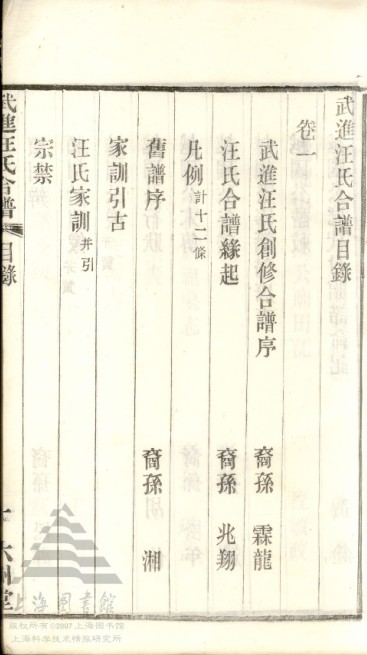 武進汪氏合譜目錄
卷一
武進汪氏創修合譜序 裔孫 霖龍
汪氏合譜緣起 裔孫 兆翔
凡例 計十二條
舊譜序 裔孫 湘
家訓引古
汪氏家訓 并引
宗禁
武進汪氏合譜 目錄 一
上海圖書館
版权所有©2007上海图书馆
上海科学技术情报研究所